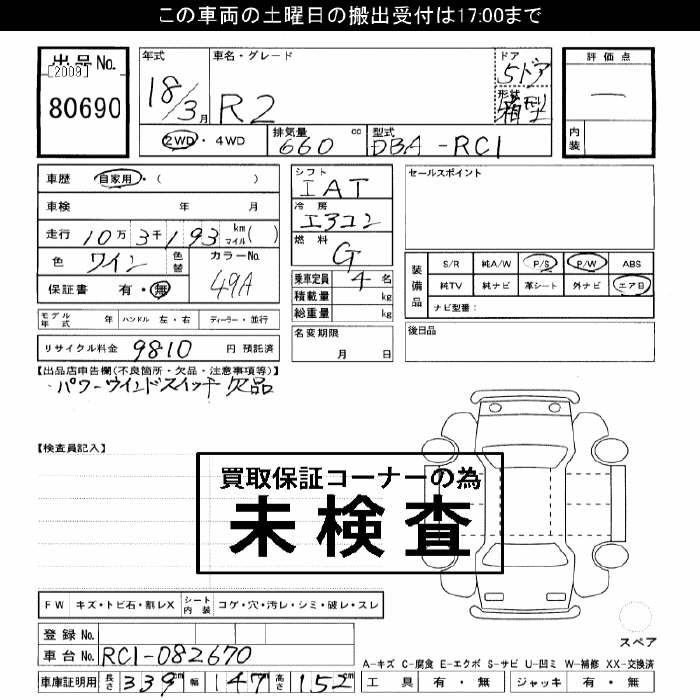 この車両の土曜日の搬出受付は17:00まで
出品No.
[2009]
80690
年式
18/3月
車名・グレード
R2
ドア
5ドア
形状
箱型
評価点
―
内装
2WD・4WD
排気量 660 cc
型式 DBA-RC1
車歴 自家用・( )
車検 年 月
走行 10万3千193 km マイル( )
色 ワイン 色替
カラーNo. 49A
保証書 有・無
シフト
IAT
冷房
エアコン
燃料
G
乗車定員 4 名
積載量 kg
総重量 kg
セールスポイント
装備品
S/R 純A/W P/S P/W ABS
純TV 純ナビ 革シート 外ナビ エアB
ナビ型番:
モデル年式 年 ハンドル 左・右 ディーラー・並行
名変期限
月 日
後日品
リサイクル料金 9810 円 預託済
【出品店申告欄(不良箇所・欠品・注意事項等)】
・パワーウインドスイッチ欠品
【検査員記入】
買取保証コーナーの為
未検査
FW キズ・トビ石・割レX シート内装 コゲ・穴・汚レ・シミ・破レ・スレ
登録No.
車台No. RC1-082670
スペア
A-キズ C-腐食 E-エクボ S-サビ U-凹ミ W-補修 XX-交換済
車庫証明用 長さ 339cm 幅 147cm 高さ 152cm
工具 有・無 ジャッキ 有・無